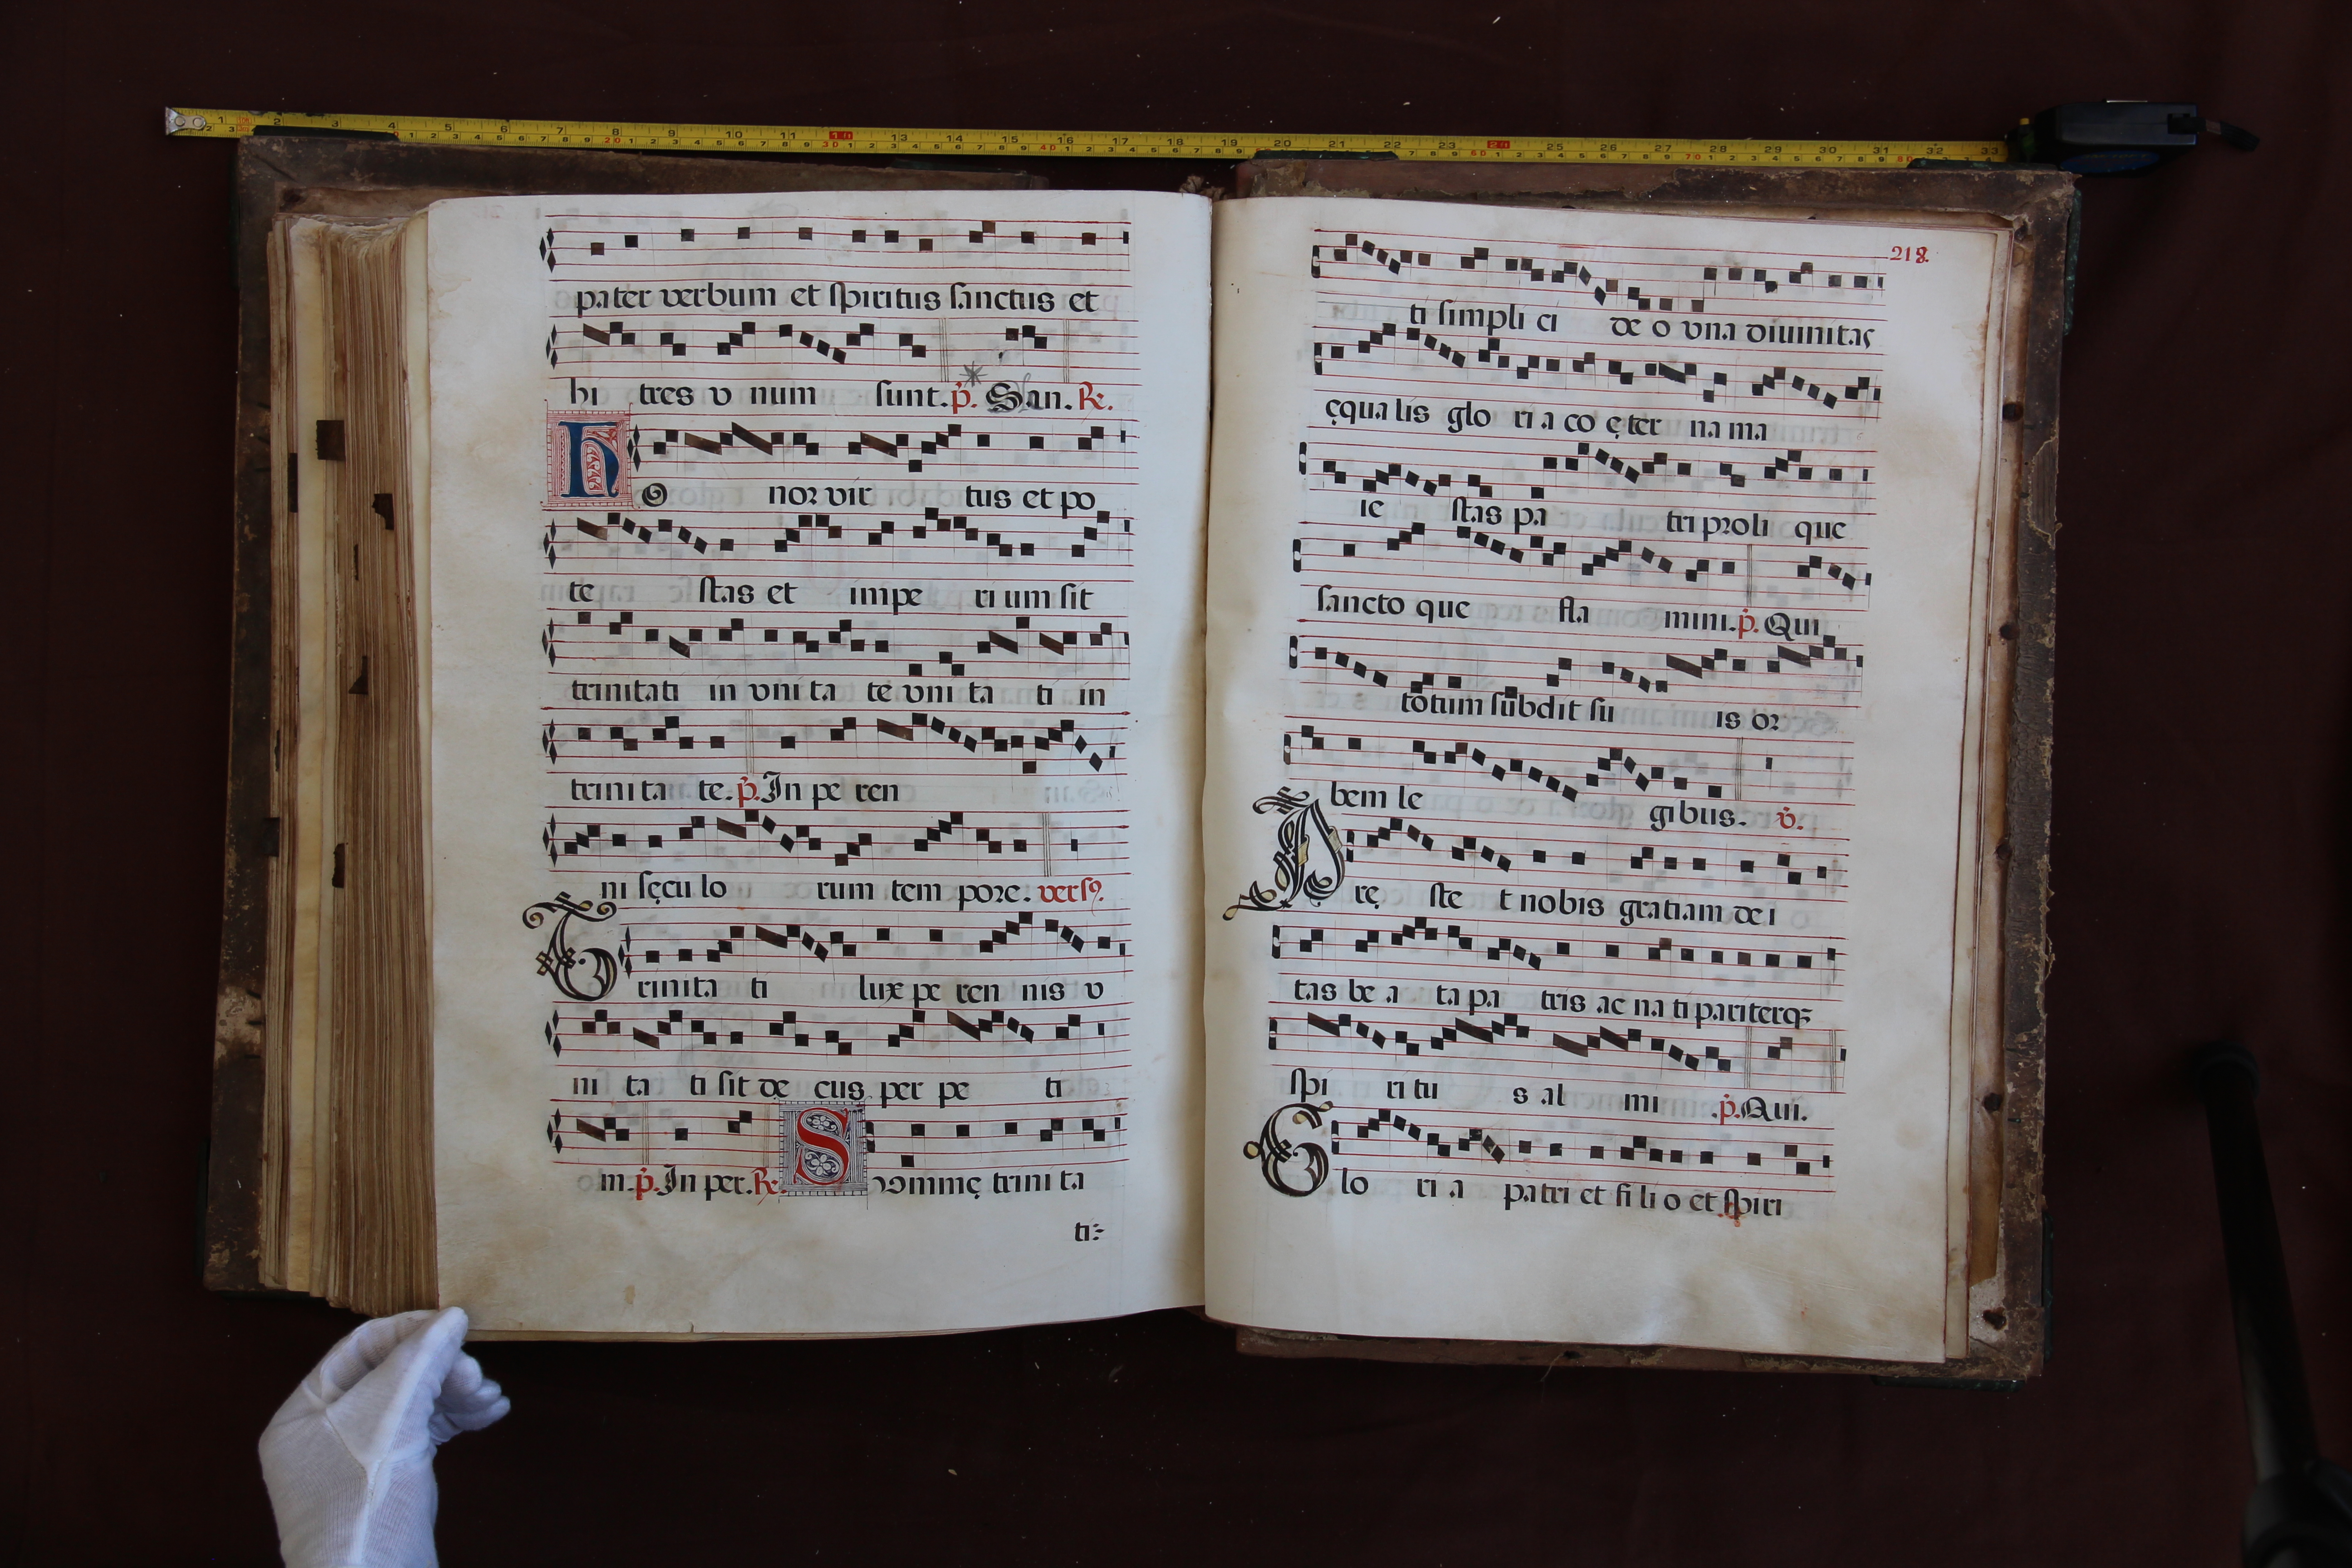 pater verbum et spiritus sanctus et
hi tres v num sunt. p. San. R.
H o nor vir tus et po
te stas et impe ri um sit
trinitati in vni ta te vni ta ti in
trini ta te. p. In pe ren
ni sęcu lo rum tem pore. vers9.
T rinita ti lux pe ren nis v
ni ta ti sit de cus per pe ti
m. p. In per. R. S vmmę trini ta
ti:
218.
ti simpli ci de o vna diuinitas
ęqua lis glo ri a co ęter na ma
ie stas pa tri proli que
sancto que fla mini. p. Qui
totum subdit su is or
bem le gibus. v.
P rę ste t nobis gratiam de i
tas be a ta pa tris ac na ti pariterq;
spi ri tu s al mi .p. Qui.
G lo ri a patri et fi li o et spiri